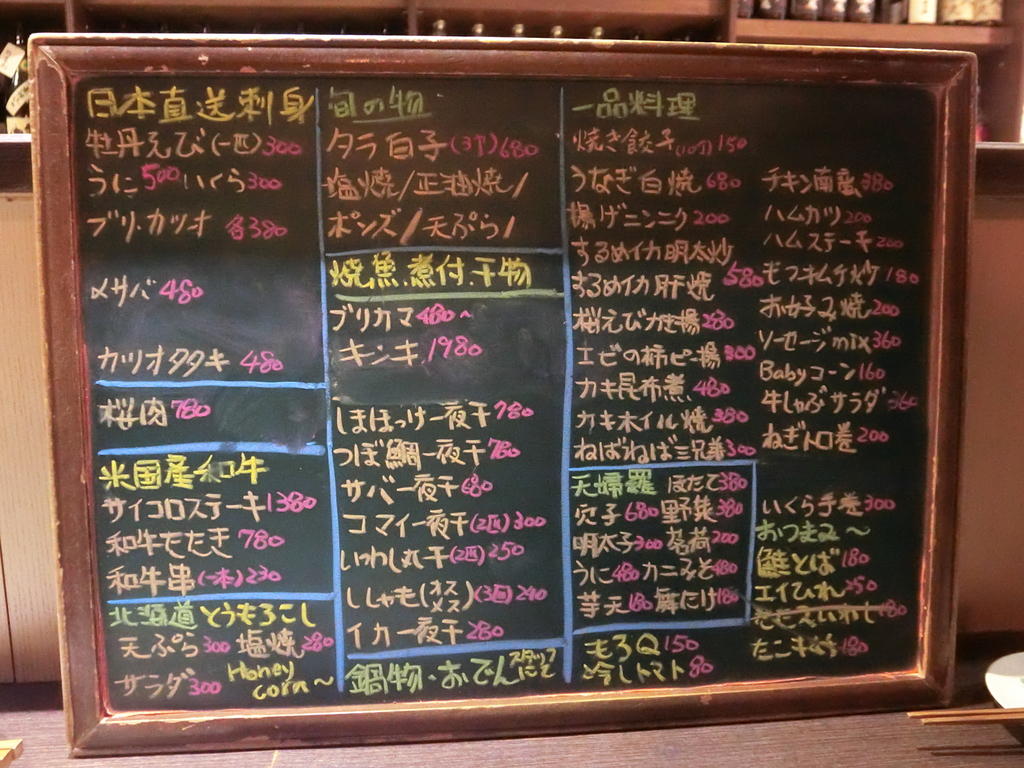 日本直送刺身
牡丹えび(一匹)300
うに500 いくら300
ブリ.カツオ 各380
メサバ 480
カツオタタキ 480
桜肉 780
米国産和牛
サイコロステーキ1380
和牛もたき 780
和牛串(一本)230
北海道とうもろこし
天ぷら300 塩焼280
サラダ300 Honey corn~
旬の物
タラ白子 680
塩焼/正油焼/
ポンズ/天ぷら/
焼魚.煮付.干物
ブリカマ480~
キンキ1980
しまほっけ一夜干780
つぼ鯛一夜干780
サバ一夜干680
コマイ一夜干(2匹)300
いわし丸干(2匹)250
ししゃも(オス メス)(3回)240
イカ一夜干280
鍋物.おでん スタッフにて
一品料理
焼き餃子 150
うなぎ白焼 680
揚げニンニク 200
するめイカ明太炒
するめイカ肝焼 580
桜えびかき揚280
エビの柿ピー揚300
カキ昆布煮 480
カキホイル焼380
ねばねば三兄弟300
天婦羅 ほたて380
穴子680 野菜380
明太子300 茗荷200
うに480 カニみそ480
芋天180 舞たけ180
もろQ150
冷しトマト80
チキン南蛮380
ハムカツ200
ハムステーキ200
モツキムチ炒180
お好み焼200
ソーセージmix360
Babyコーン160
牛しゃぶサラダ360
ねぎトロ巻200
いくら手巻300
おつまみ~
鮭とば180
エイひれ250
たこ 180